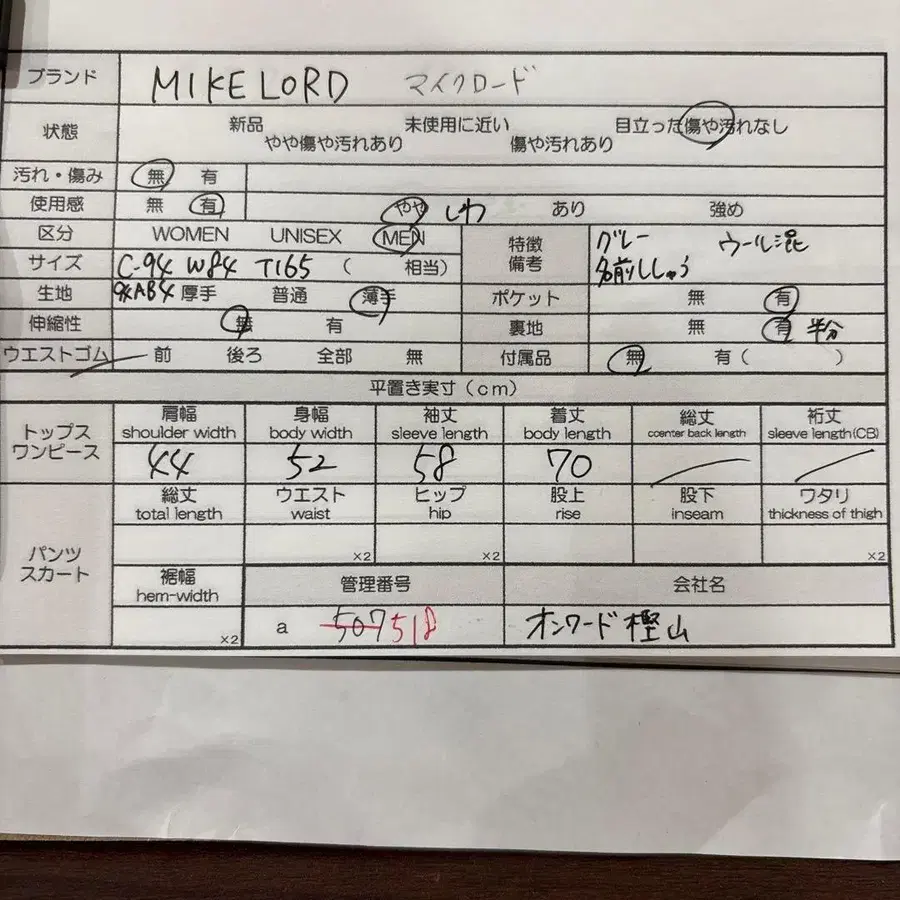 ブランド MIKE LORD マイクロード
状態 新品 未使用に近い 目立った傷や汚れなし
やや傷や汚れあり 傷や汚れあり
汚れ・傷み 無 有
使用感 無 有 やや しわ あり 強め
区分 WOMEN UNISEX MEN 特徴 備考 グレー ウール混
サイズ C-94 W84 T165 ( 相当) 名前ししゅう
生地 AB4 厚手 普通 薄手 ポケット 無 有
伸縮性 無 有 裏地 無 有 半分
ウエストゴム 前 後ろ 全部 無 付属品 無 有 ( )
平置き実寸 (cm)
トップス ワンピース 肩幅 身幅 袖丈 着丈 総丈 裄丈
shoulder width body width sleeve length body length ccenter back length sleeve length(CB)
44 52 58 70
パンツ スカート 総丈 ウエスト ヒップ 股上 股下 ワタリ
total length waist hip rise inseam thickness of thigh
×2 ×2 ×2
裾幅 管理番号 会社名
hem-width
×2 a 507 518 オンワード樫山